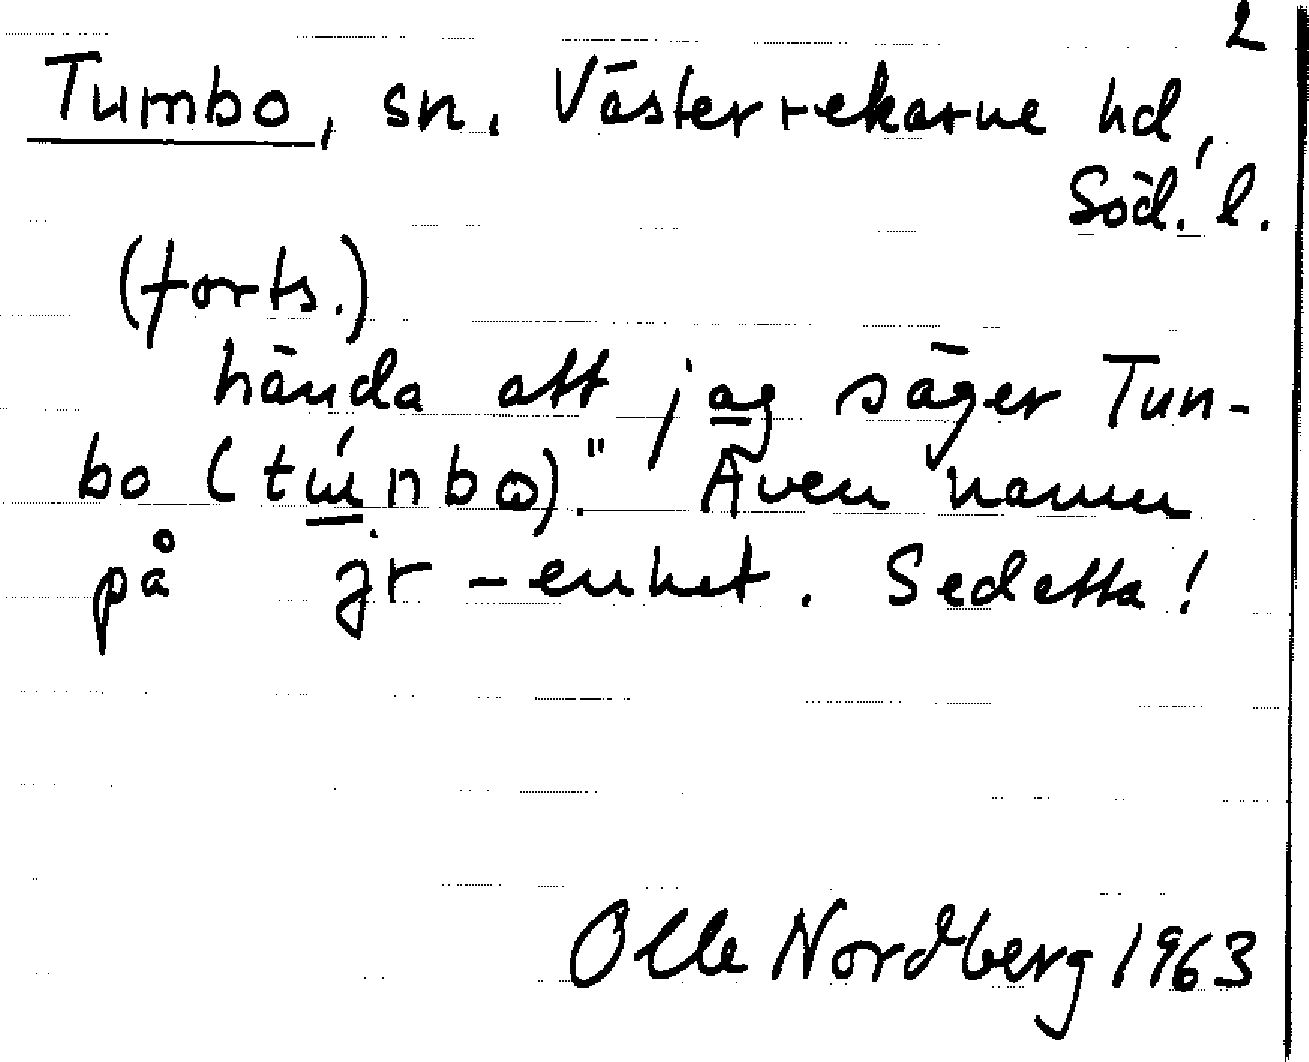 2
Tumbo, sn. Västerrekarne hd,
Söd. l.
(forts.)
hända att jag säger Tun-
bo (túnbo)." Även namn
på jr-enhet. Se detta!
Olle Nordberg 1963